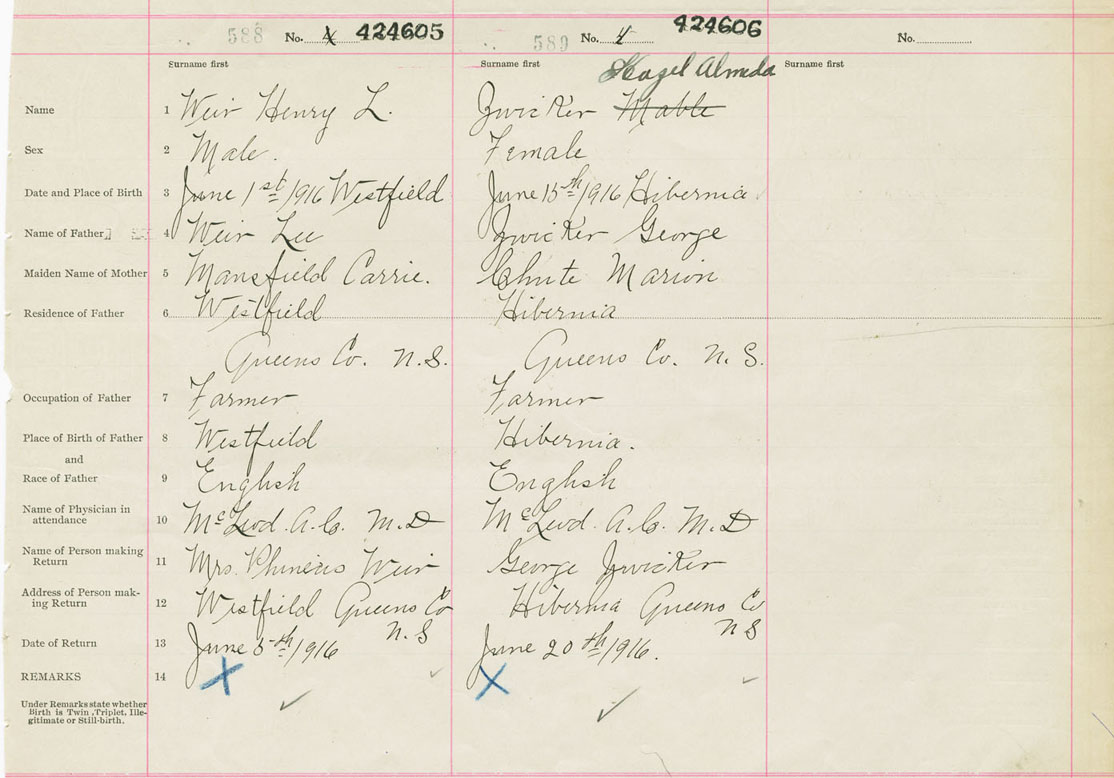 588 No. 4 424605 589 No. 4 424606 No.
Surname first Surname first Hazel Almeda Surname first
Name 1 Weir Henry L. Zwicker Mable
Sex 2 Male. Female
Date and Place of Birth 3 June 1st/1916 Westfield June 15th/1916 Hibernia
Name of Father 4 Weir Lee Zwicker George
Maiden Name of Mother 5 Mansfield Carrie. Chute Marion
Residence of Father 6 Westfield Hibernia
Queens Co. N.S. Queens Co. N.S.
Occupation of Father 7 Farmer Farmer
Place of Birth of Father 8 Westfield Hibernia.
and
Race of Father 9 English English
Name of Physician in
attendance 10 McLeod. A.C. M.D McLeod. A.C. M.D
Name of Person making
Return 11 Mrs. Phineas Weir George Zwicker
Address of Person mak-
ing Return 12 Westfield Queens Co Hibernia Queens Co
N.S N S
Date of Return 13 June 5th/1916 June 20th/1916.
REMARKS 14 X X
Under Remarks state whether
Birth is Twin, Triplet, Ille-
gitimate or Still-birth.